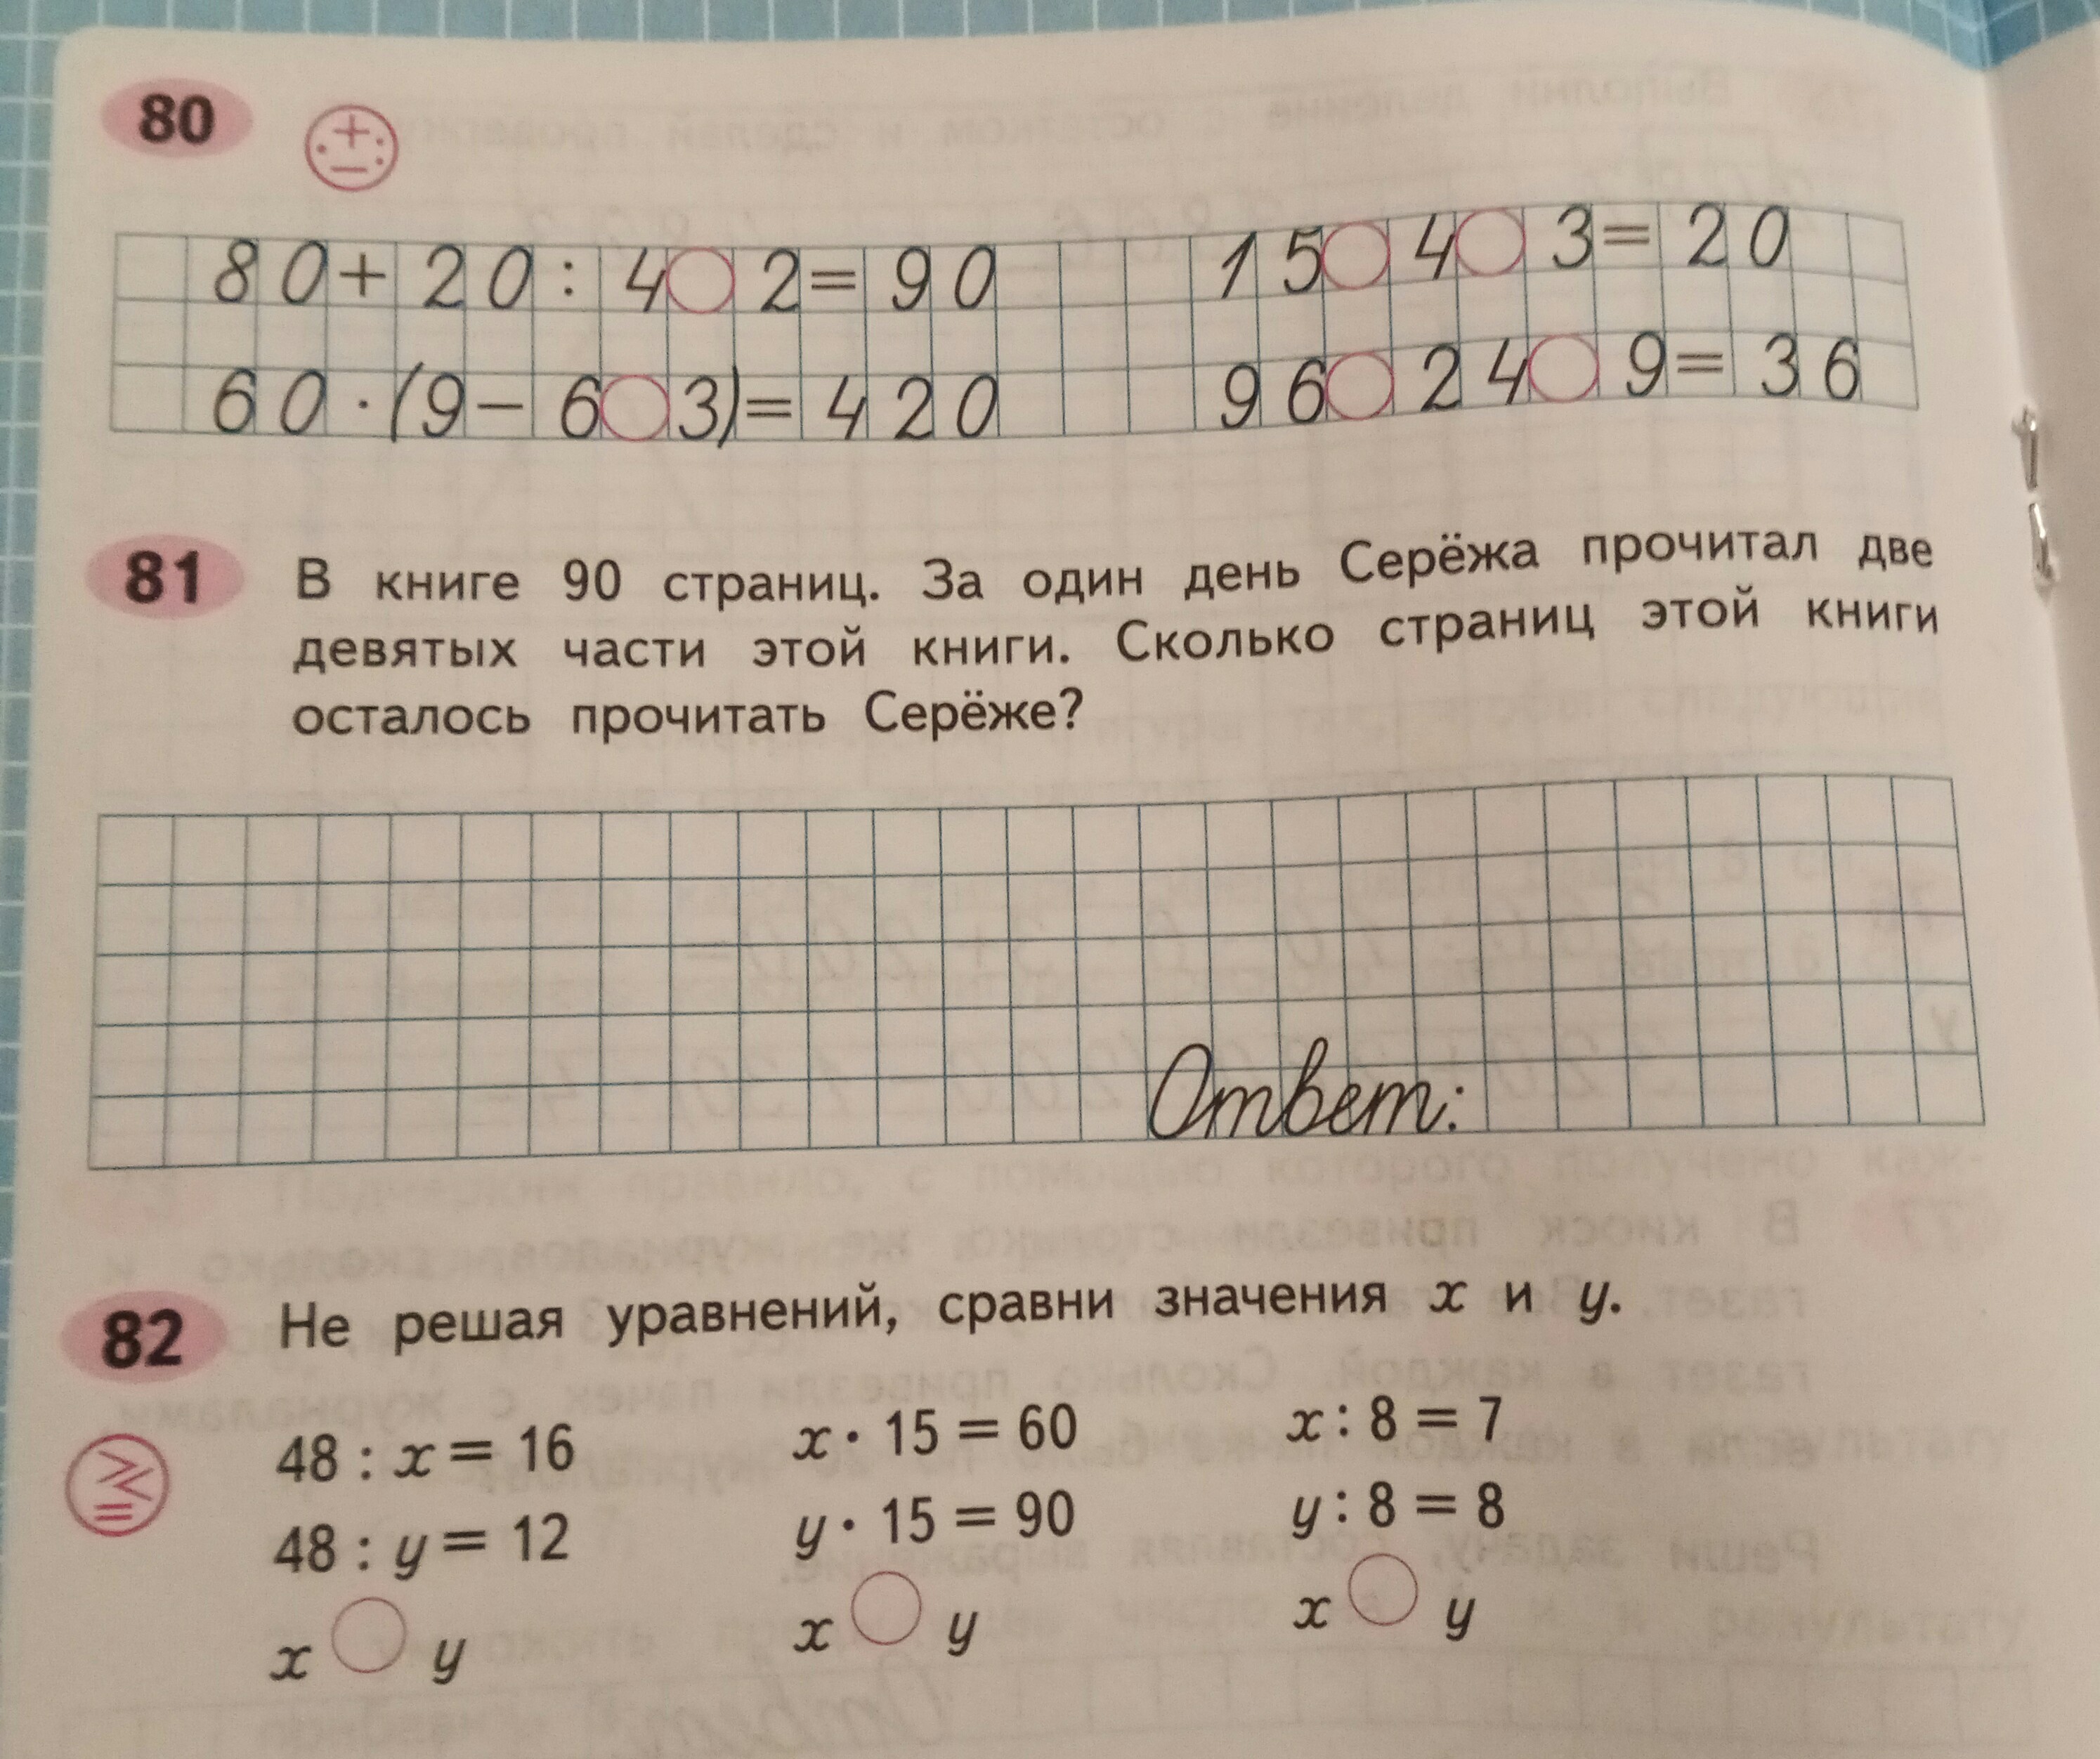 80
80+20:4○2=90 15○4○3=20
60·(9-6○3)=420 96○24○9=36
81 В книге 90 страниц. За один день Серёжа прочитал две
девятых части этой книги. Сколько страниц этой книги
осталось прочитать Серёже?
Ответ:
82 Не решая уравнений, сравни значения x и y.
48 : x = 16 x · 15 = 60 x : 8 = 7
48 : y = 12 y · 15 = 90 y : 8 = 8
x ○ y x ○ y x ○ y